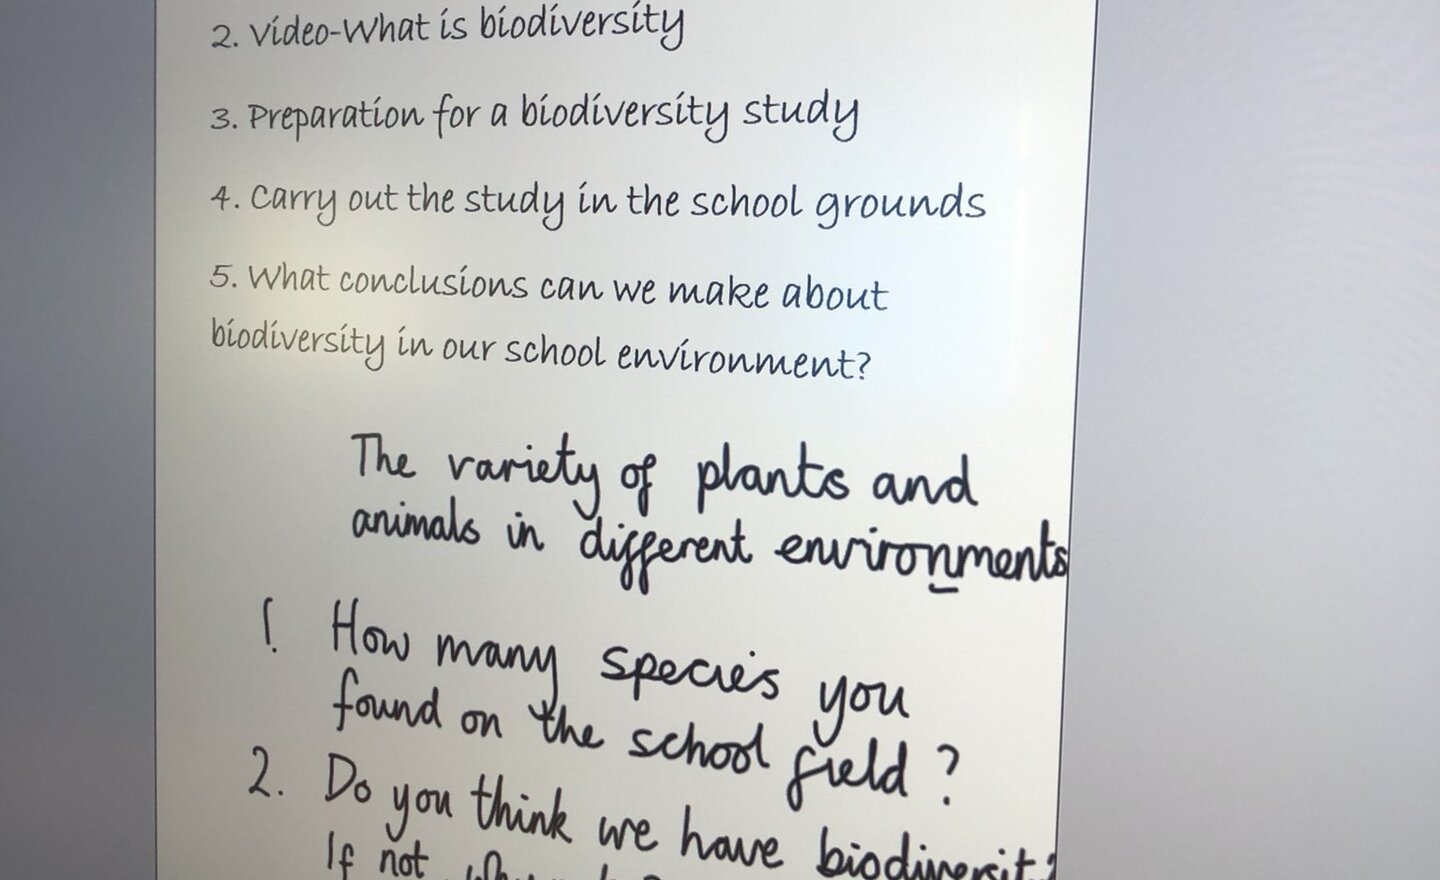 2. Video-What is biodiversity
3. Preparation for a biodiversity study
4. Carry out the study in the school grounds
5. What conclusions can we make about
biodiversity in our school environment?
The variety of plants and
animals in different environments
1. How many species you
found on the school field?
2. Do you think we have biodiversity?
If not